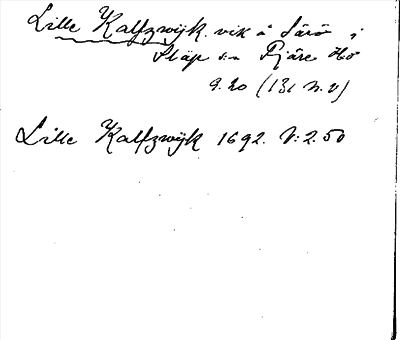 Lille Kalfzwijk. vik å Särö i
Släp s:n Fjäre Hd
9.20 (131 n. v)
Lille Kalfzwijk 1692. V: 2. 50